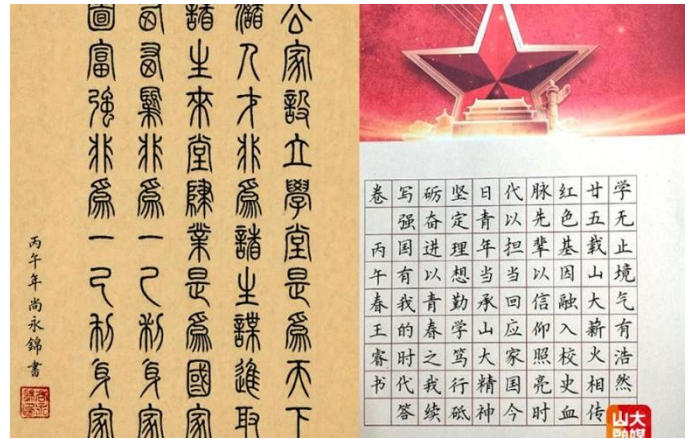 公家設立學堂是爲天下
人才非爲諸生謀進取
諸生來堂肄業是爲國家
非爲一己利身家
圖富強非爲一己利身家
丙午年尚永錦書
学无止境气有浩然
廿五载山大薪火相传
红色基因融入校史血
脉先辈以信仰照亮时
代以担当回应家国今
日青年当承山大精神
坚定理想勤学笃行砥
砺奋进以青春之我续
写强国有我的时代答
卷 丙午春王睿书
山大融媒